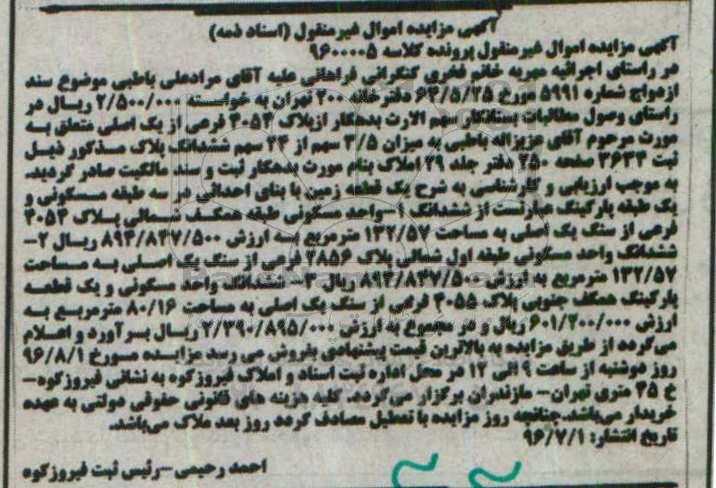 آگهی مزایده اموال غیرمنقول (اسناد ذمه)
آگهی مزایده اموال غیرمنقول پرونده کلاسه ۹۶۰۰۰۰۵
در راستای اجرائیه مهریه خانم فخری کنگرانی فراهانی علیه آقای مرادعلی باطبی موضوع سند
ازدواج شماره ۵۹۹۱ مورخ ۶۴/۵/۲۵ دفترخانه ۲۰۰ تهران به خواسته ۲/۵۰۰/۰۰۰ ریال در
راستای وصول مطالبات بستانکار سهم الارث بدهکار ازپلاک ۴۰۵۴ فرعی از یک اصلی متعلق به
مورث مرحوم آقای عزیزاله باطبی به میزان ۳/۵ سهم از ۲۴ سهم ششدانگ پلاک مذکور ذیل
ثبت ۳۶۳۴ صفحه ۲۵۰ دفتر جلد ۲۹ املاک بنام مورث بدهکار ثبت و سند مالکیت صادر گردید.
به موجب ارزیابی و کارشناسی به شرح یک قطعه زمین با بنای احداثی در سه طبقه مسکونی و
یک طبقه پارکینگ عبارتست از ششدانگ ۱-واحد مسکونی طبقه همکف شمالی پلاک ۴۰۵۴
فرعی از سنگ یک اصلی به مساحت ۱۳۲/۵۷ مترمربع به ارزش ۸۹۴/۸۴۷/۵۰۰ ریال ۲-
ششدانگ واحد مسکونی طبقه اول شمالی پلاک ۲۸۵۶ فرعی از سنگ یک اصلی به مساحت
۱۳۲/۵۷ مترمربع به ارزش ۸۹۴/۸۴۷/۵۰۰ ریال ۳- ششدانگ واحد مسکونی و یک قطعه
پارکینگ همکف جنوبی پلاک ۴۰۵۵ فرعی از سنگ یک اصلی به مساحت ۸۰/۱۶ مترمربع به
ارزش ۶۰۱/۲۰۰/۰۰۰ ریال و در مجموع به ارزش ۲/۳۹۰/۸۹۵/۰۰۰ ریال برآورد و اعلام
می‌گردد از طریق مزایده به بالاترین قیمت پیشنهادی بفروش می رسد مزایده مورخ ۹۶/۸/۱
روز دوشنبه از ساعت ۹ الی ۱۲ در محل اداره ثبت اسناد و املاک فیروزکوه به نشانی فیروزکوه-
خ ۴۵ متری تهران- مازندران برگزار می‌گردد. کلیه هزینه های قانونی حقوقی دولتی به عهده
خریدار می‌باشد.چنانچه روز مزایده با تعطیل مصادف گردد روز بعد ملاک می‌باشد.
تاریخ انتشار: ۹۶/۷/۱
احمد رحیمی -رئیس ثبت فیروزکوه